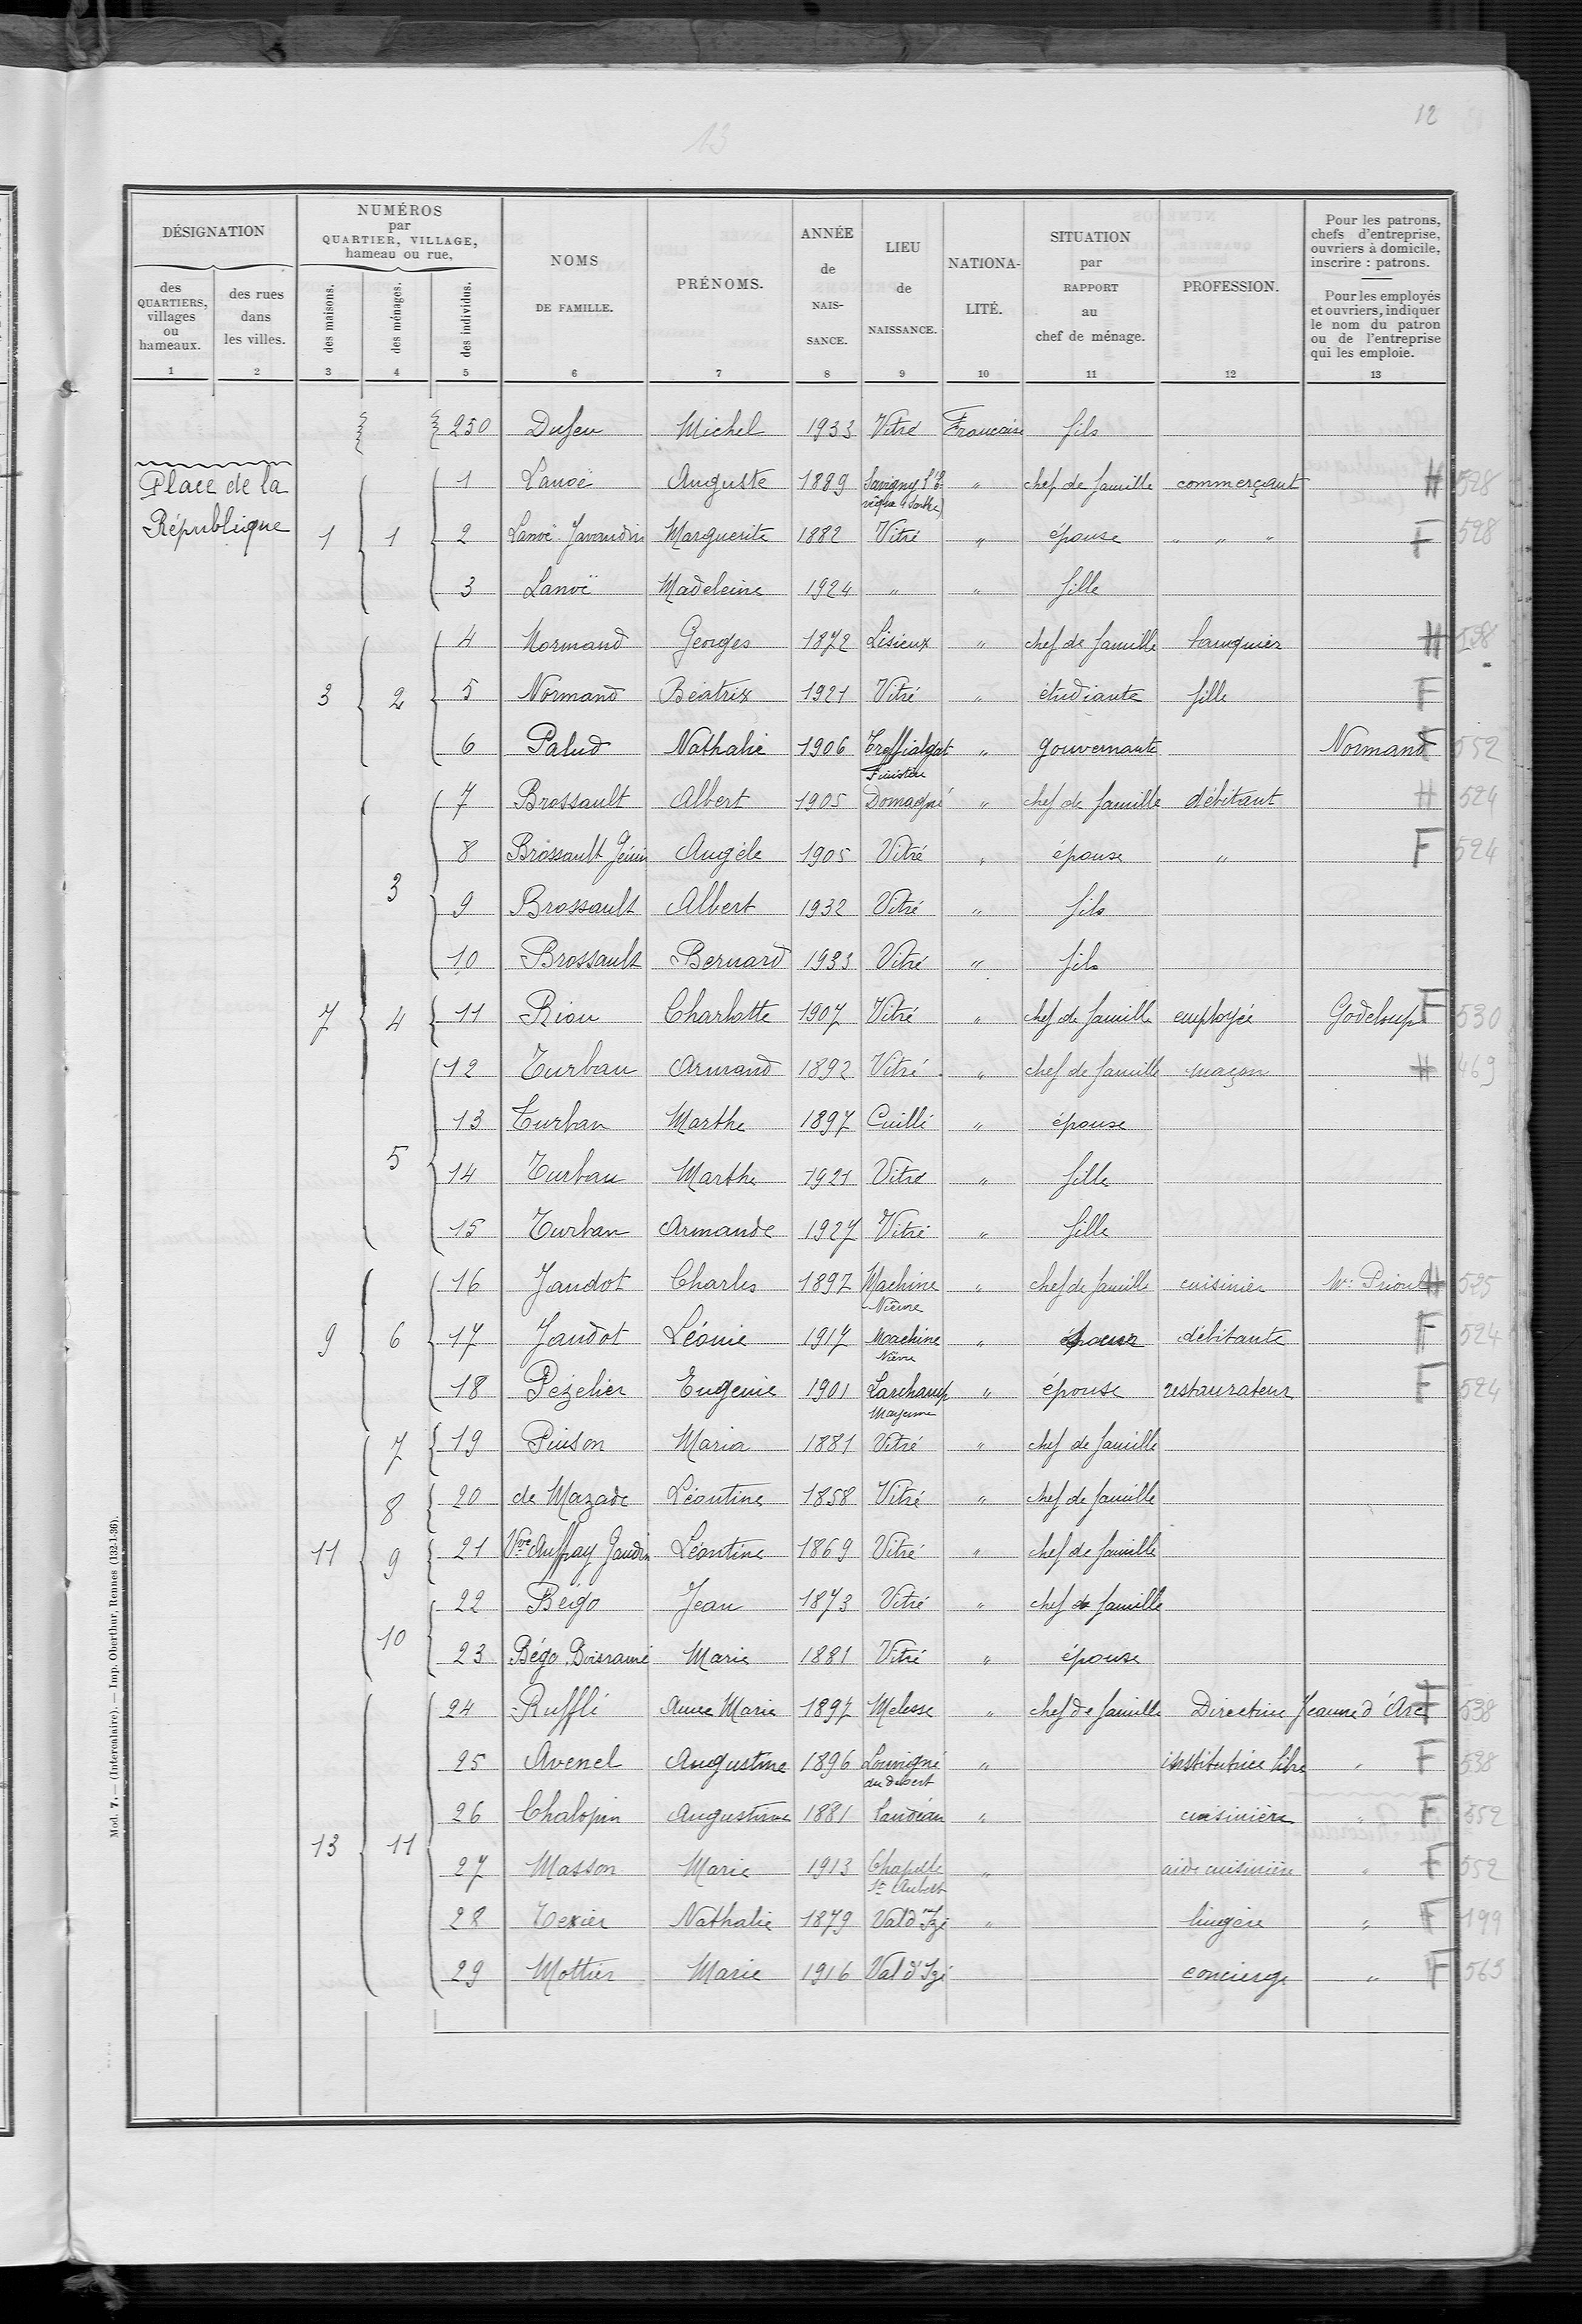 12
13
DÉSIGNATION
NUMÉROS
par
QUARTIER, VILLAGE,
hameau ou rue,
des
QUARTIERS,
villages
ou
hameaux.
des rues
dans
les villes.
des maisons.
des ménages.
des individus.
NOMS
DE FAMILLE.
PRÉNOMS.
ANNÉE
de
NAIS-
SANCE.
LIEU
de
NAISSANCE.
NATIONA-
LITÉ.
SITUATION
par
RAPPORT
au
chef de ménage.
PROFESSION.
Pour les patrons,
chefs d'entreprise,
ouvriers à domicile,
inscrire : patrons.
Pour les employés
et ouvriers, indiquer
le nom du patron
ou de l'entreprise
qui les emploie.
1 2 3 4 5 6 7 8 9 10 11 12 13
250 Dufeu Michel 1933 Vitré Francaise fils
Place de la
République
1 Lanoë Auguste 1889 Savigny l'E- " chef de famille commerçant H 528
vêque (Sarthe)
1 1 2 Lanoë Javaudin Marguerite 1882 Vitré " épouse " " " F 528
3 Lanoë Madeleine 1924 " " fille
4 Normand Georges 1872 Lisieux " chef de famille banquier H 598
3 2 5 Normand Béatrix 1921 Vitré " étudiante fille F
6 Palud Nathalie 1906 Treffiagat " gouvernante Normand F 552
Finistère
7 Brossault Albert 1905 Domagné " chef de famille débitant H 524
8 Brossault Génin Angèle 1905 Vitré " épouse " F 524
3
9 Brossault Albert 1932 Vitré " fils
10 Brossault Bernard 1933 Vitré " fils
7 4 11 Riou Charlotte 1907 Vitré " chef de famille employée Godeloup F 530
12 Turban Armand 1892 Vitré " chef de famille maçon H 469
13 Turban Marthe 1897 Cuillé " épouse
5
14 Turban Marthe 1921 Vitré " fille
15 Turban Armande 1927 Vitré " fille
16 Jaudot Charles 1897 Machine " chef de famille cuisinier H 525
Nièvre
9 6 17 Jaudot Léonie 1917 Machine " débitante F 524
Nièvre
18 Pezelier Eugenie 1901 Larchamp " épouse restaurateur F 524
Mayenne
7 19 Pinson Maria 1881 Vitré " chef de famille
8 20 de Mazade Léontine 1858 Vitré " chef de famille
11 9 21 Vve Auffray Jaudin Léontine 1869 Vitré " chef de famille
22 Bégo Jean 1873 Vitré " chef de famille
10
23 Bégo Boisramé Marie 1881 Vitré " épouse
24 Rufflé Anne Marie 1897 Melesse " chef de famille Directrice Jeanne d'Arc F 538
25 Avenel Augustine 1896 Louvigné " institutrice libre " F 538
du désert
26 Chalopin Augustine 1881 Landéan " cuisinière " F 552
13 11
27 Masson Marie 1913 Chapelle " aide cuisinière " F 552
St Aubert
28 Texier Nathalie 1879 Val d'Izé " lingère " F 199
29 Mottier Marie 1916 Val d'Izé concierge " F 563
Mod. 7. — (Intercalaire). — Imp. Oberthur, Rennes (132-1-36).